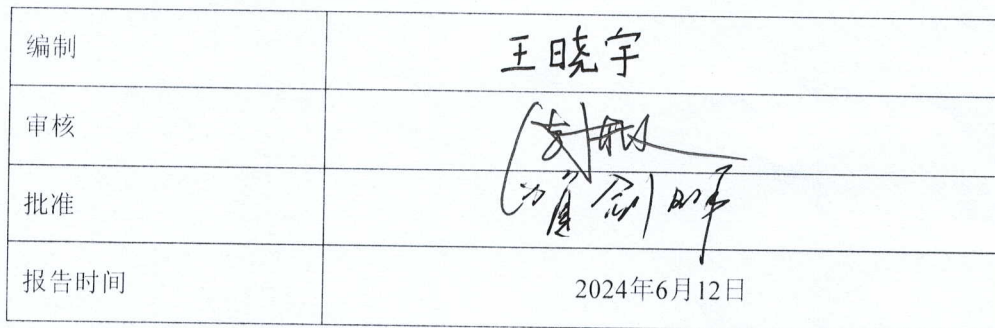 编制 王晓宇
审核 刘敏
批准
报告时间 2024年6月12日